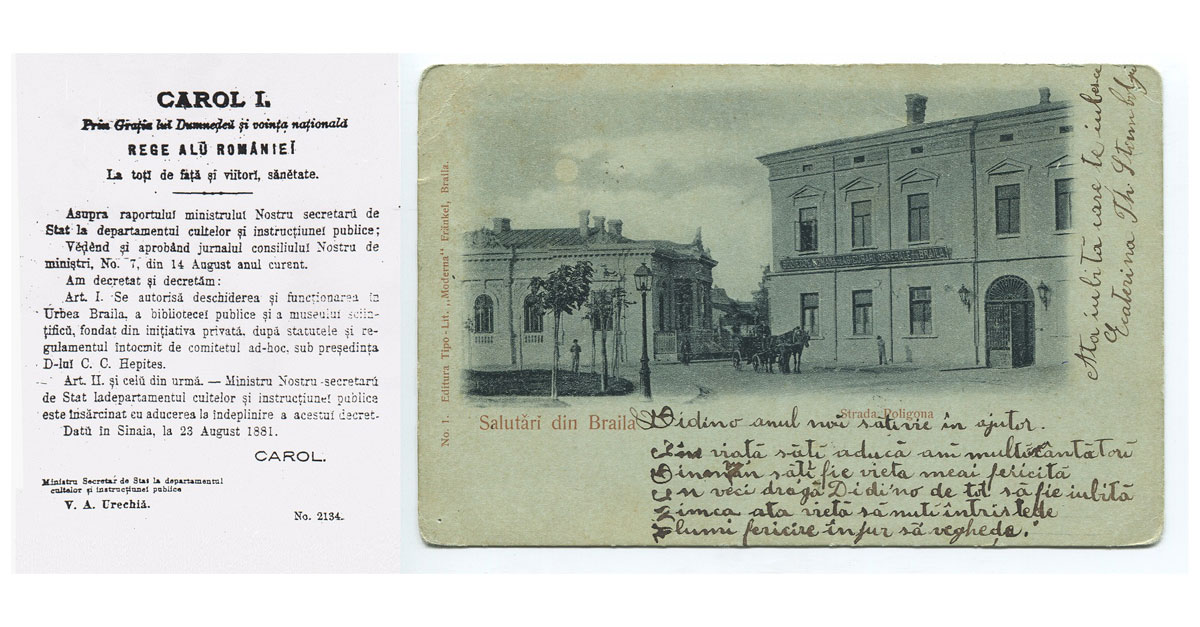 CAROL I.
Prin Grația lui Dumnedeŭ și voința națională
REGE ALŬ ROMÂNIEĬ
La toți de față și viitori, sănětate.
Asupra raportuluĭ ministruluĭ Nostru secretarŭ de
Stat la departamentul cultelor și instrucțiuneĭ publice;
Vědênd și aprobând jurnalul consiliuluĭ Nostru de
miniștri, No. 7, din 14 August anul curent.
Am decretat și decretăm:
Art. I. Se autorisă deschiderea și funcționarea în
Urbea Braila, a bibliotecei publice și a museuluĭ sciin-
țifică, fondat din inițiativa privată, după statutele și re-
gulamentul întocmit de comitetul ad-hoc, sub președința
D-luĭ C. C. Hepites.
Art. II. și celŭ din urmă. — Ministru Nostru secretarŭ
de Stat ladepartamentul cultelor și instrucțiuneĭ publice
este însărcinat cu aducerea la îndeplinire a acestuĭ decret-
Datŭ în Sinaia, la 23 August 1881.
CAROL.
Ministru Secretar de Stat la departamentul
cultelor și instrucțiuneĭ publice
V. A. Urechiă.
No. 2134.
No. 1. Editura Tipo-Lit. „Moderna" Fränkel, Braila.
Salutări din Braila
Strada Poligona
Didino anul noŭ sativie în ajutor.
În viată săti aducă ani multi cântători
Dinmăn săti fie vieta meai fericită
In veci dragă Didino de tot să fie iubită
Zimca ata vietă sănuti întristede
Slumi fericire înjur să veghede.
Ata iubita care te iubesce
Ecaterina Th Stambolgi